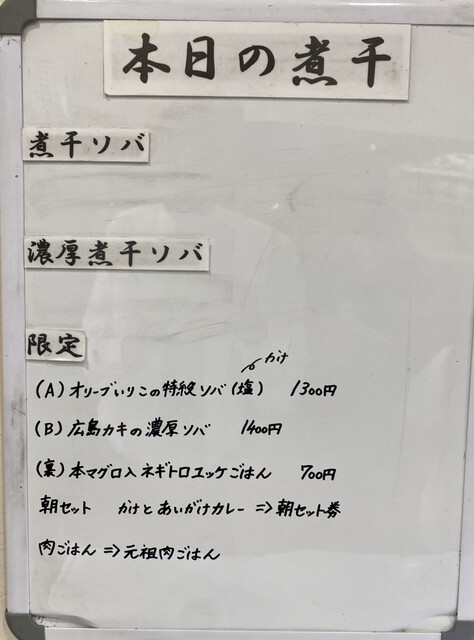 本日の煮干
煮干ソバ
濃厚煮干ソバ
限定
かけ
(A) オリーブいりこの特純ソバ(塩) 1300円
(B) 広島カキの濃厚ソバ 1400円
(裏) 本マグロ入ネギトロユッケごはん 700円
朝セット かけとあいがけカレー ⇒ 朝セット券
肉ごはん ⇒ 元祖肉ごはん